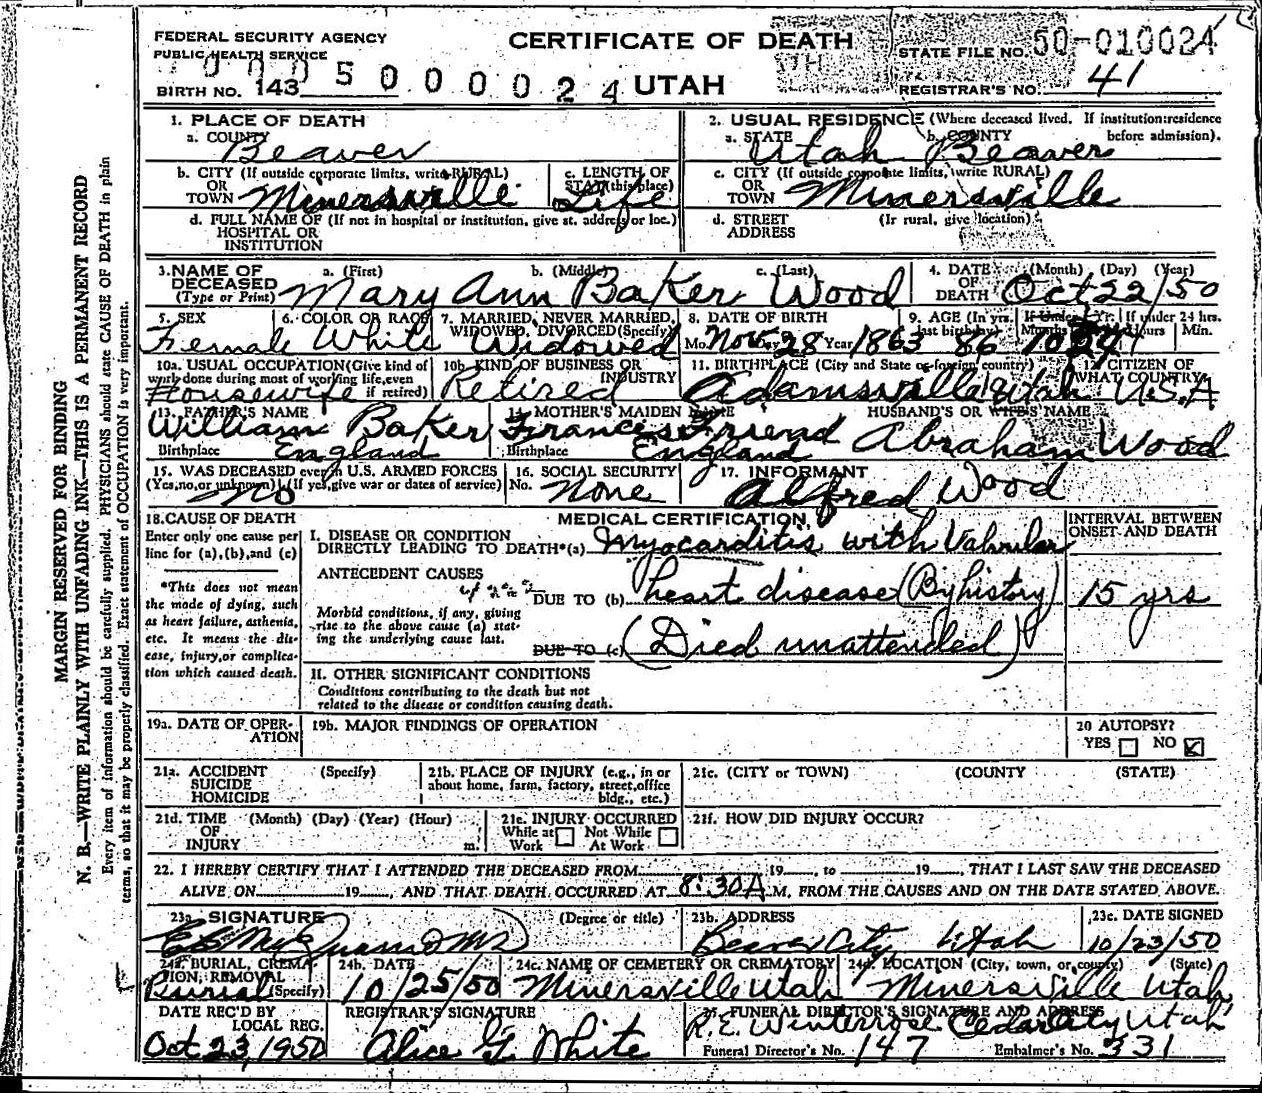 FEDERAL SECURITY AGENCY
PUBLIC HEALTH SERVICE
CERTIFICATE OF DEATH
STATE FILE NO. 50-010024
BIRTH NO. 143 000500000024 UTAH
REGISTRAR'S NO. 41
1. PLACE OF DEATH
a. COUNTY Beaver
2. USUAL RESIDENCE (Where deceased lived. If institution:residence before admission).
a. STATE Utah b. COUNTY Beaver
b. CITY (If outside corporate limits, write RURAL) OR TOWN Minersville
c. LENGTH OF STAY (this place) Life
c. CITY (If outside corporate limits, write RURAL) OR TOWN Minersville
d. FULL NAME OF (If not in hospital or institution, give st. address or loc.) HOSPITAL OR INSTITUTION
d. STREET ADDRESS (If rural, give location)
3. NAME OF DECEASED (Type or Print) a. (First) b. (Middle) c. (Last)
Mary Ann Baker Wood
4. DATE OF DEATH (Month) (Day) (Year) Oct 22/50
5. SEX Female
6. COLOR OR RACE White
7. MARRIED, NEVER MARRIED, WIDOWED, DIVORCED (Specify) Widowed
8. DATE OF BIRTH Mo. Nov Day 28 Year 1863
9. AGE (In yrs. last birthday) 86 If Under 1 Yr. Months 10 24 If under 24 hrs. Hours Min.
10a. USUAL OCCUPATION (Give kind of work done during most of working life, even if retired) Housewife
10b. KIND OF BUSINESS OR INDUSTRY Retired
11. BIRTHPLACE (City and State or foreign country) Adamsville Utah
12. CITIZEN OF WHAT COUNTRY U.S.A
13. FATHER'S NAME William Baker
Birthplace England
14. MOTHER'S MAIDEN NAME Frances Friend
Birthplace England
HUSBAND'S OR WIFE'S NAME Abraham Wood
15. WAS DECEASED ever in U.S. ARMED FORCES (Yes, no, or unknown) (If yes, give war or dates of service) No
16. SOCIAL SECURITY No. None
17. INFORMANT Alfred Wood
18. CAUSE OF DEATH
Enter only one cause per line for (a), (b), and (c)
*This does not mean the mode of dying, such as heart failure, asthenia, etc. It means the disease, injury, or complication which caused death.
MEDICAL CERTIFICATION
INTERVAL BETWEEN ONSET AND DEATH
I. DISEASE OR CONDITION DIRECTLY LEADING TO DEATH*(a) Myocarditis with Valvular
ANTECEDENT CAUSES
Morbid conditions, if any, giving rise to the above cause (a) stating the underlying cause last.
DUE TO (b) heart disease (By history) 15 yrs
DUE TO (c) (Died unattended)
II. OTHER SIGNIFICANT CONDITIONS
Conditions contributing to the death but not related to the disease or condition causing death.
19a. DATE OF OPERATION
19b. MAJOR FINDINGS OF OPERATION
20 AUTOPSY? YES NO
21a. ACCIDENT SUICIDE HOMICIDE (Specify)
21b. PLACE OF INJURY (e.g., in or about home, farm, factory, street, office bldg., etc.)
21c. (CITY or TOWN) (COUNTY (STATE)
21d. TIME OF INJURY (Month) (Day) (Year) (Hour) m.
21e. INJURY OCCURRED While at Work Not While At Work
21f. HOW DID INJURY OCCUR?
22. I HEREBY CERTIFY THAT I ATTENDED THE DECEASED FROM 19, to 19, THAT I LAST SAW THE DECEASED
ALIVE ON 19, AND THAT DEATH OCCURRED AT 8:30A M, FROM THE CAUSES AND ON THE DATE STATED ABOVE.
23a. SIGNATURE (Degree or title)
23b. ADDRESS Beaver City Utah
23c. DATE SIGNED 10/23/50
24a. BURIAL, CREMATION, REMOVAL (Specify) Burial
24b. DATE 10/25/50
24c. NAME OF CEMETERY OR CREMATORY Minersville Utah
24d. LOCATION (City, town, or county) (State) Minersville Utah
DATE REC'D BY LOCAL REG. Oct 23, 1950
REGISTRAR'S SIGNATURE Alice G. White
FUNERAL DIRECTOR'S SIGNATURE AND ADDRESS R.E. Winterrose Cedar City Utah
Funeral Director's No. 147 Embalmer's No. 331
MARGIN RESERVED FOR BINDING
N. B.—WRITE PLAINLY WITH UNFADING INK—THIS IS A PERMANENT RECORD
Every item of information should be carefully supplied. PHYSICIANS should state CAUSE OF DEATH in plain
terms, so that it may be properly classified. Exact statement of OCCUPATION is very important.